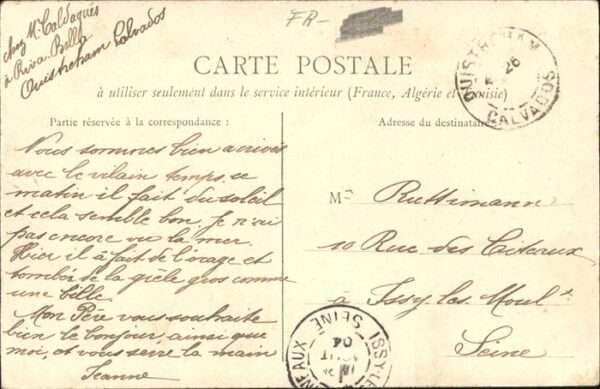 chez Mr Caldaguès
à Riva-Bella
Ouistreham Calvados
FR-
CARTE POSTALE
à utiliser seulement dans le service intérieur (France, Algérie et Tunisie)
OUISTREHAM
26
CALVADOS
Partie réservée à la correspondance :
Nous sommes bien arrivés
avec le vilain temps, ce
matin il fait du soleil
et cela semble bon, je n'ai
pas encore vu la mer.
Hier il à fait de l'orage et
tombée de la grèle gros comme
une bille.
Mon Père vous souhaite
bien le bonjour, ainsi que
moi, et vous serre la main
Jeanne
Adresse du destinataire
Mr Ruttimann
10 Rue des Citeaux
à Issy les Moulx
Seine
ISSY-LE
NEAUX
SEINE
04